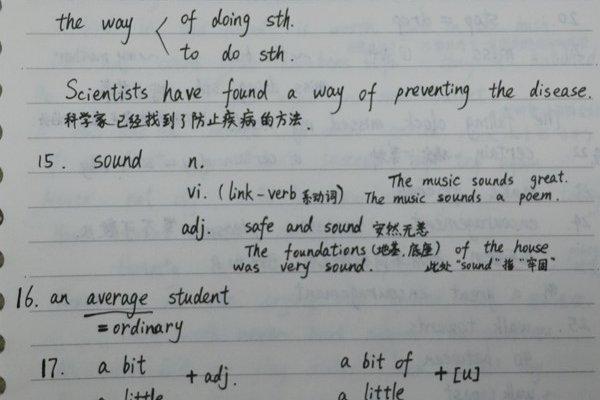 the way < of doing sth.
to do sth.
Scientists have found a way of preventing the disease.
科学家已经找到了防止疾病的方法.
15. sound n.
vi. (link-verb 系动词) The music sounds great.
The music sounds a poem.
adj. safe and sound 安然无恙
The foundations (地基,底座) of the house
was very sound. 此处"sound"指"牢固"
16. an average student
= ordinary
17. a bit + adj. a bit of + [u]
a little a little